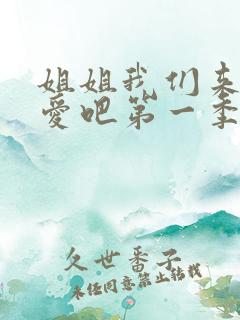 姐姐我们来
爱吧第一季
久世番子
未经同意禁止转载